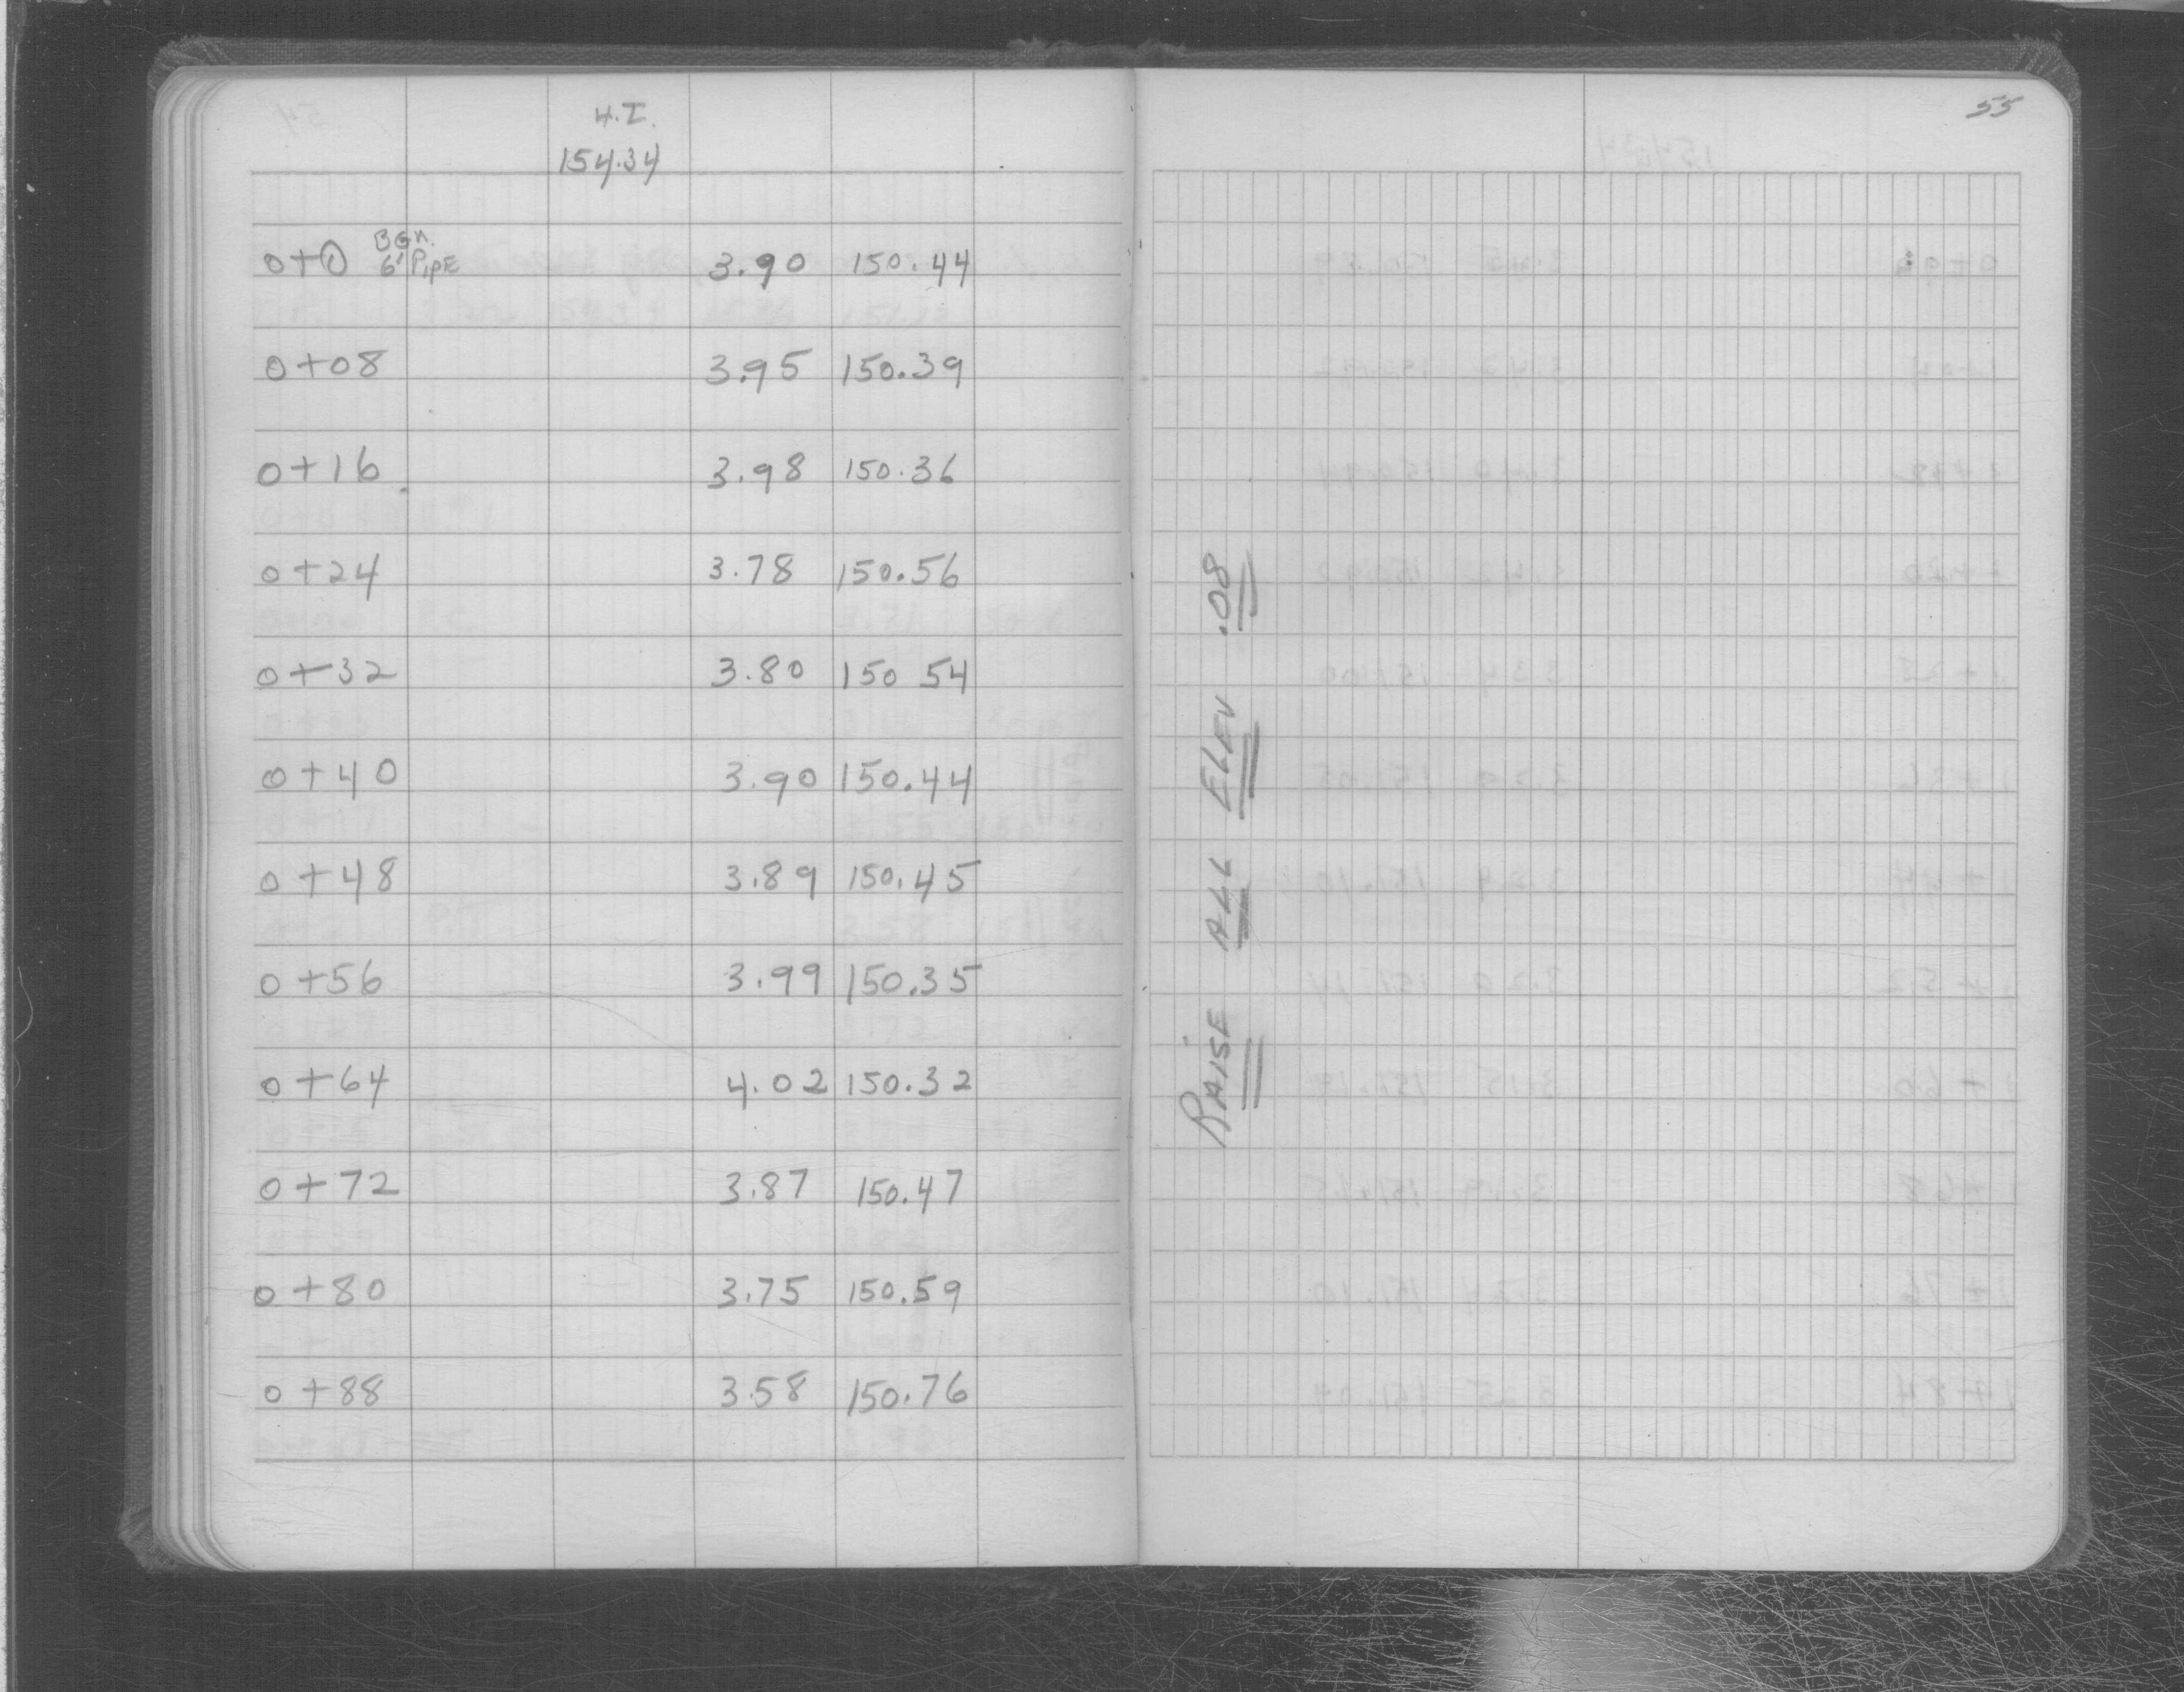 H.I.
154.34
BGN.
0+0 6" PIPE 3.90 150.44
0+08 3.95 150.39
0+16 3.98 150.36
0+24 3.78 150.56
0+32 3.80 150 54
0+40 3.90 150.44
0+48 3.89 150.45
0+56 3.99 150.35
0+64 4.02 150.32
0+72 3.87 150.47
0+80 3.75 150.59
0+88 3.58 150.76
55
RAISE ALL ELEV .08